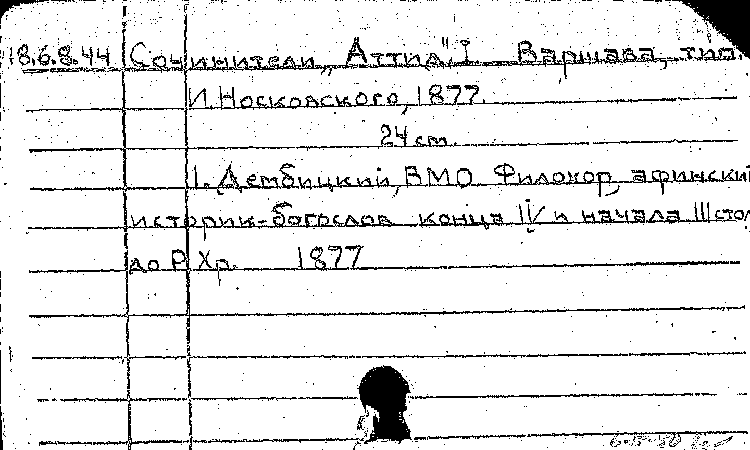 18.6.8.44 Сочинители „Аттид", I Варшава, тип.
И. Носковского, 1877.
24 cm.
1. Дембицкий, ВМО Филохор, афинский
историк-богослов конца IV и начала III стол
до Р. Хр. 1877